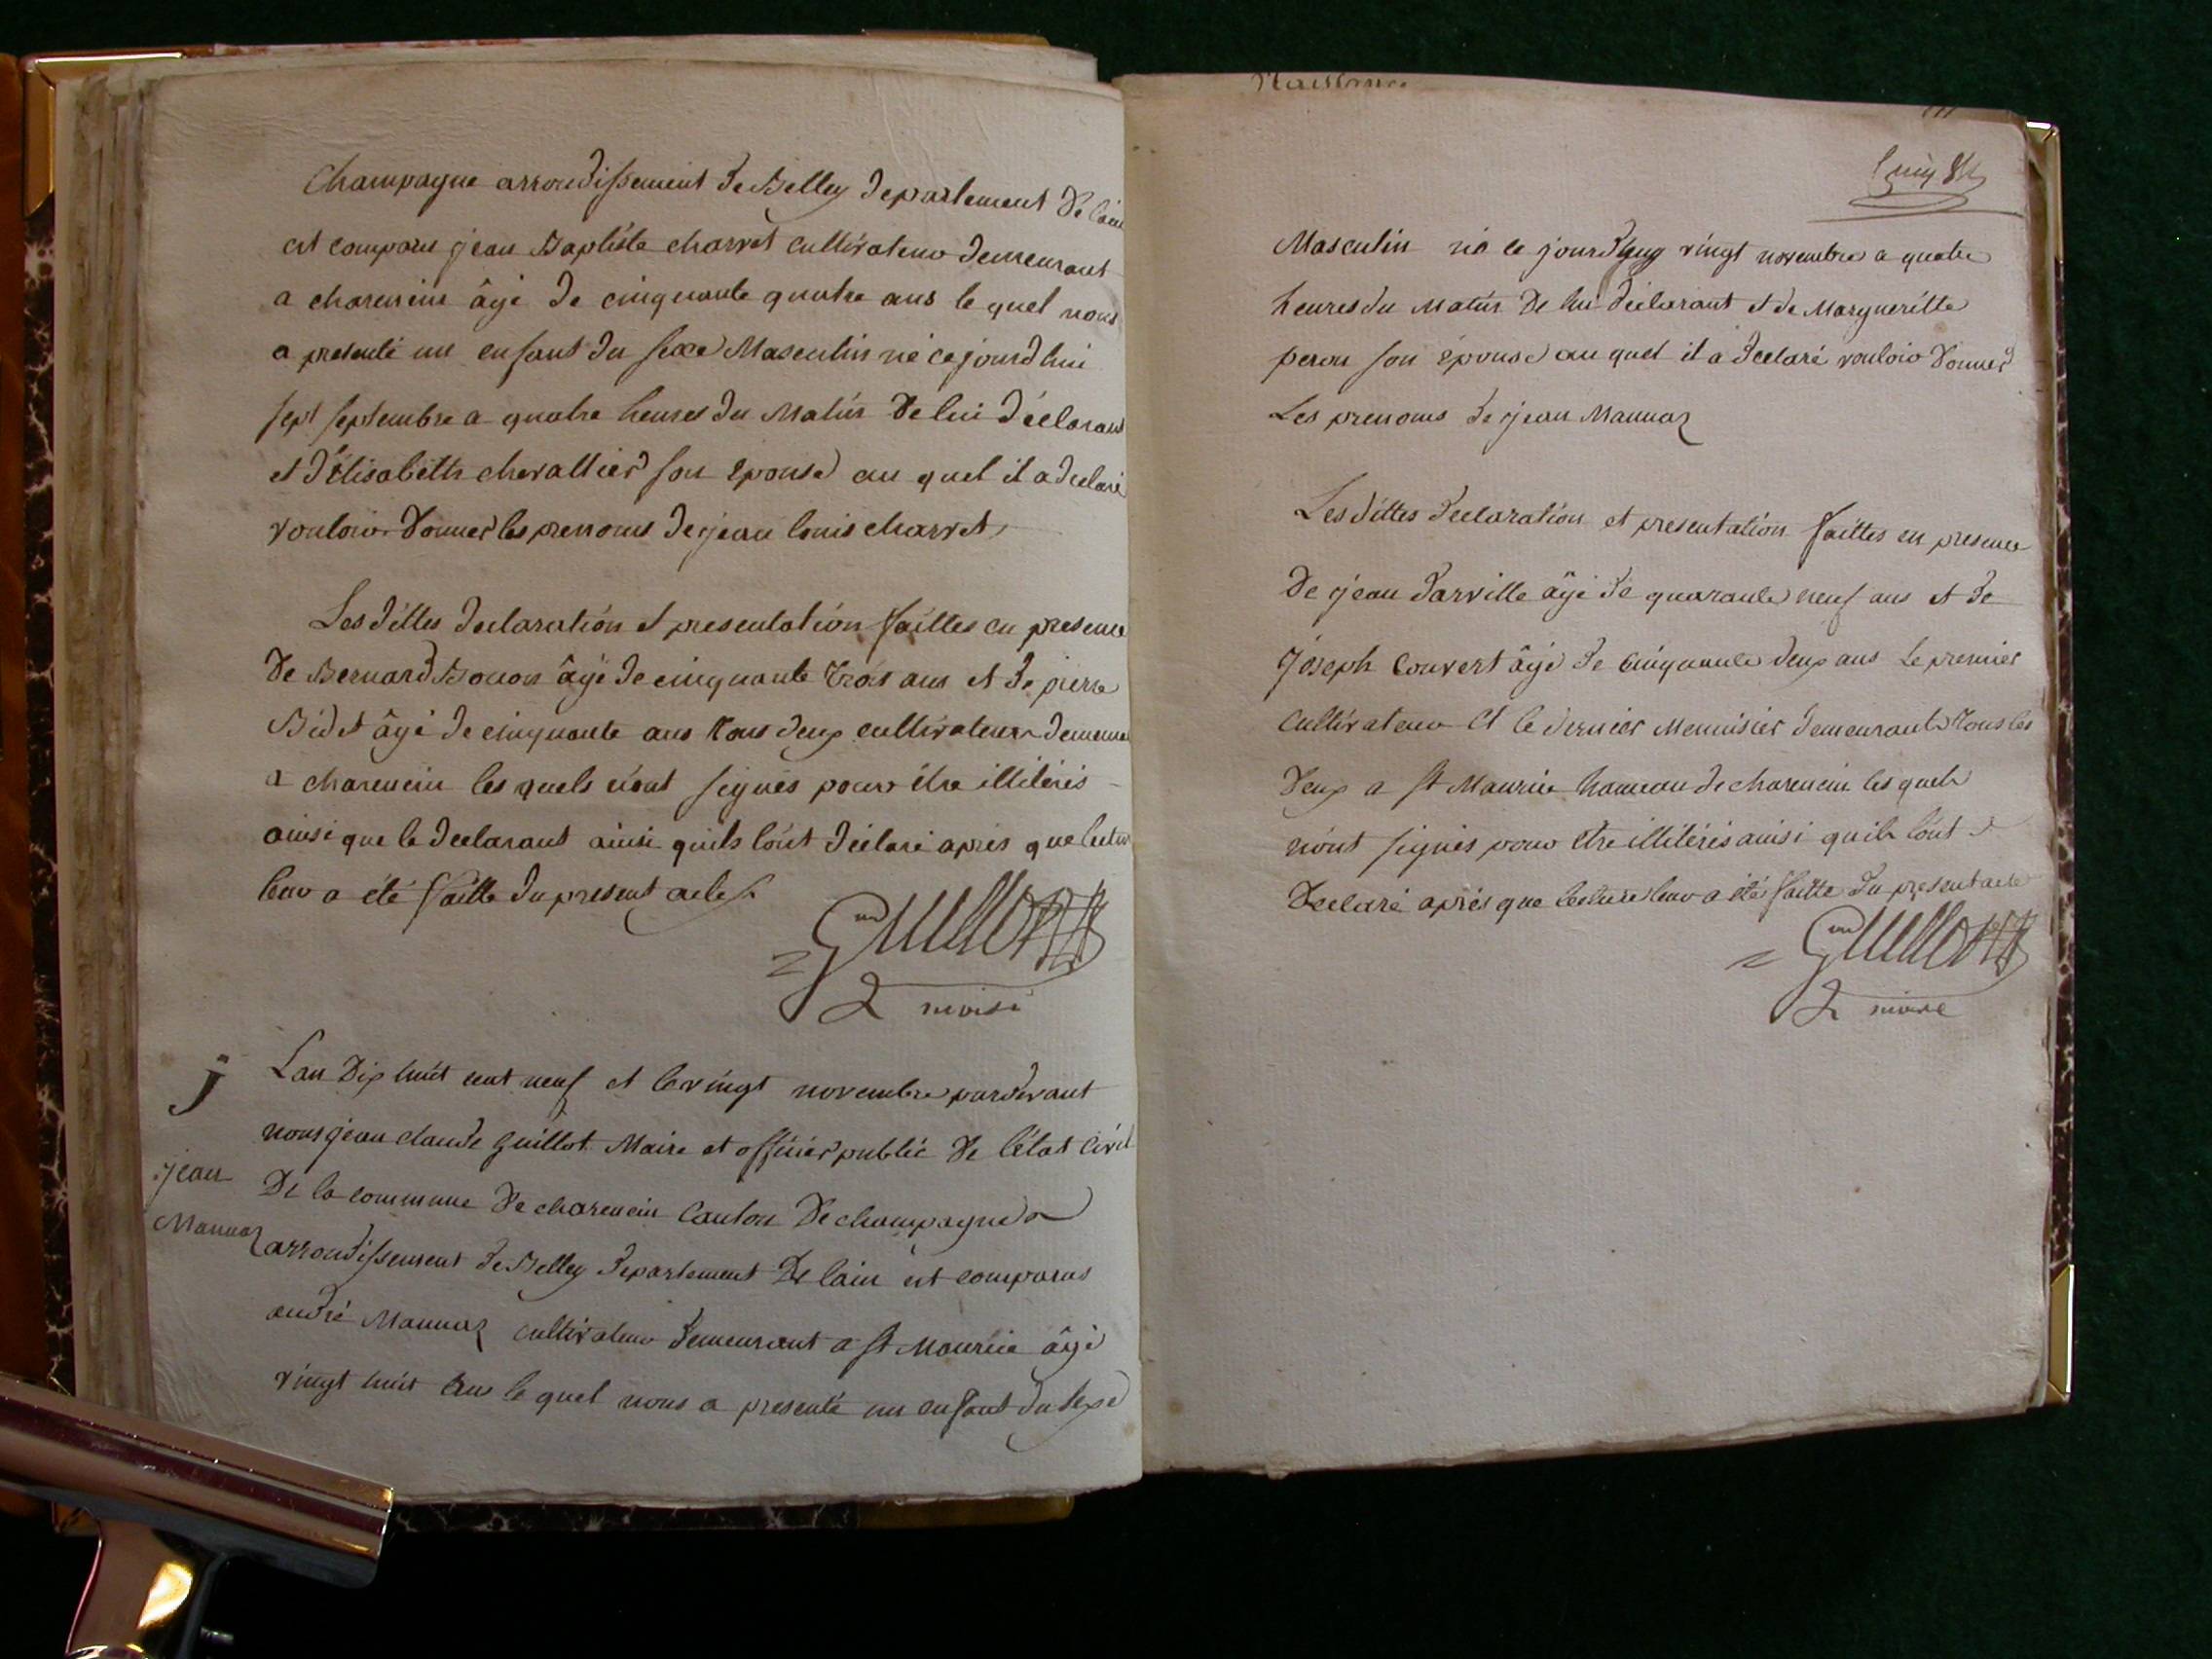 Champagne arrondissement de Belley departement de lain
est comparu jean Baptiste charvet cultivateur demeurant
a charencin âgé de cinquante quatre ans le quel nous
a presenté un enfant du sexe Masculin né ce jourdhui
sept septembre a quatre heures du Matin de lui déclarant
et d'Elisabeth chevallier son épouse au quel il a declaré
vouloir donner les prenoms de jean louis charvet
Les dittes declaration et presentation faittes en presence
de Bernard Bonon âgé de cinquante trois ans et de pierre
Bidet âgé de cinquante ans tous deux cultivateurs
a charencin les quels n'ont signés pour être illitérés
ainsi que le declarant ainsi quils l'ont déclaré après que lecture
leur a été faitte du present acte
Guillot
maire
j
jean
Mannaz
Lan dix huit cent neuf et le vingt novembre pardevant
nous jean claude guillot Maire et officier public de l'état civil
De la commune de charencin Canton de champagne
arrondissement de Belley departement De lain est comparus
andré Mannaz cultivateur demeurant a st Maurice âgé
vingt huit ans le quel nous a presenté un enfant du sexe
Naissance
Masculin né ce jourdhuy vingt novembre a quatre
heures du Matin de lui déclarant et de Margueritte
peron son épouse au quel il a declaré vouloir donner
Les prenoms de jean Mannaz
Les dittes declaration et presentation faittes en presence
de jean darville âgé de quarante neuf ans et de
Joseph Couvert âgé de cinquante deux ans Le premier
Cultivateur et le dernier Menuisier demeurant tous les
deux a st Maurice hameau de charencin les quels
n'ont signés pour être illitérés ainsi quils l'ont
declaré après que lecture leur a été faitte du present acte
Guillot
maire